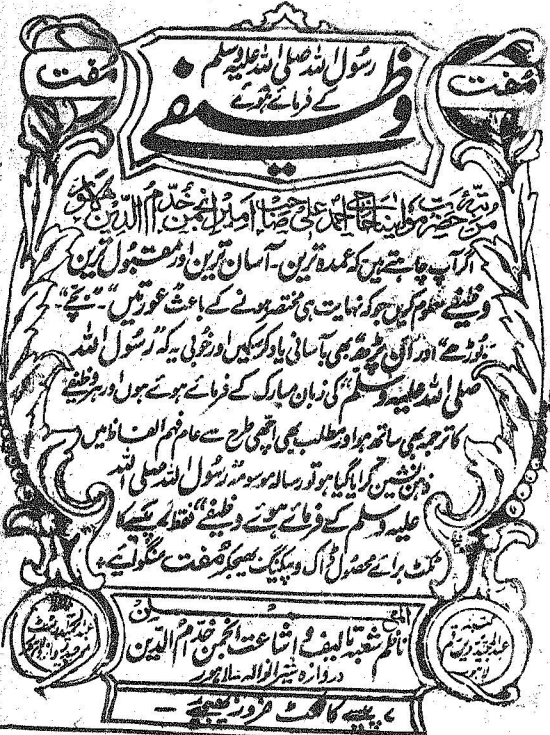 مفت
رسول اللہ صلی اللہ علیہ وسلم
کے فرمائے ہوئے
وظیفے
مفت
مرتبہ حضرت مولینا الحاج احمد علی صاحب امیر انجمن خدام الدین لاہور
اگر آپ چاہتے ہیں کہ عمدہ ترین۔ آسان ترین اور مقبول ترین
وظیفے معلوم کریں جو کہ نہایت ہی مختصر ہونے کے باعث عورتیں"۔"بچے"
بوڑھے" اور ان پڑھ بھی بآسانی یاد کر سکیں اور خوبی یہ کہ "رسول اللہ
صلی اللہ علیہ وسلم" کی زبان مبارک کے فرمائے ہوئے ہوں اور ہر وظیفے
کا ترجمہ بھی ساتھ ہو اور مطلب بھی اچھی طرح سے عام فہم الفاظ میں
ذہن نشین کرایا گیا ہو تو رسالہ موسومہ رسول اللہ صلی اللہ
علیہ وسلم کے فرمائے ہوئے وظیفے" فقط پیسے کا
ٹکٹ برائے محصول ڈاک و پیکنگ بھیجکر مفت منگوائیے۔
ناظم شعبۂ تالیف و اشاعت انجمن خدام الدین
دروازہ شیرانوالہ لاہور
پیسے کا ٹکٹ ضرور بھیجئے